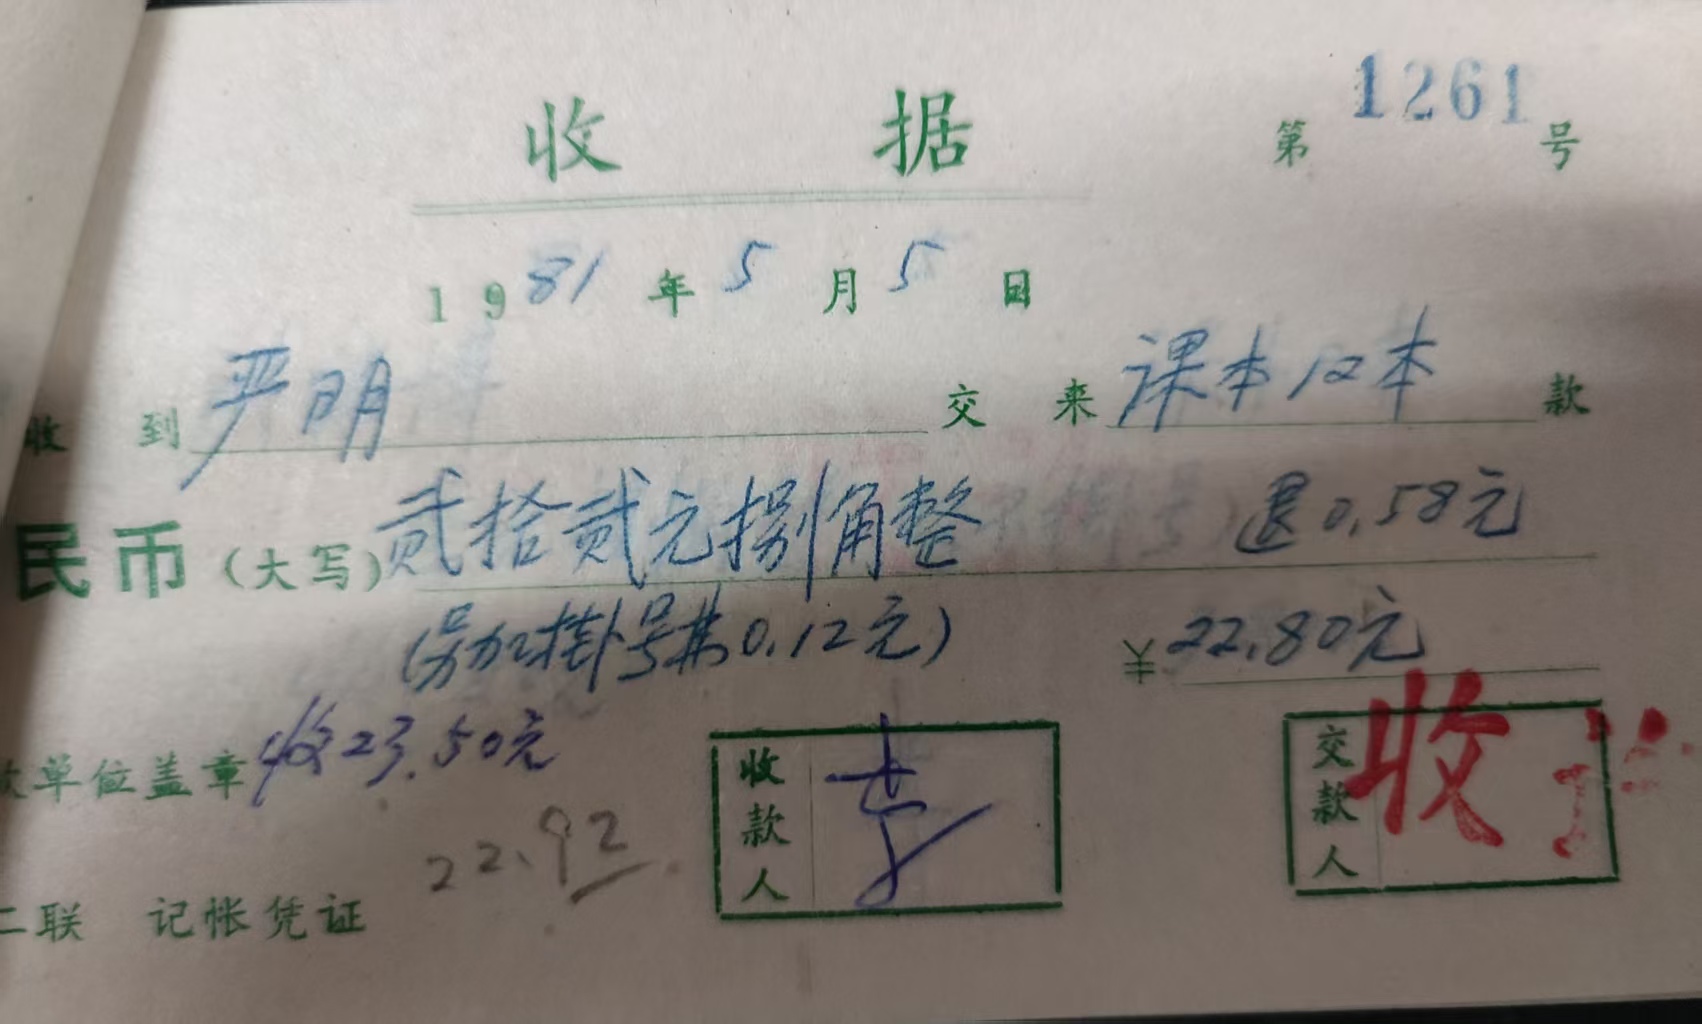 收据
第 1261 号
1981年5月5日
收到 严明 交来 课本12本 款
民币(大写) 贰拾贰元捌角整 退0.58元
(另加掛号费0.12元) ¥22.80元
款单位盖章 收23.50元
收款人 李
交款人 收
22.92
二联 记帐凭证